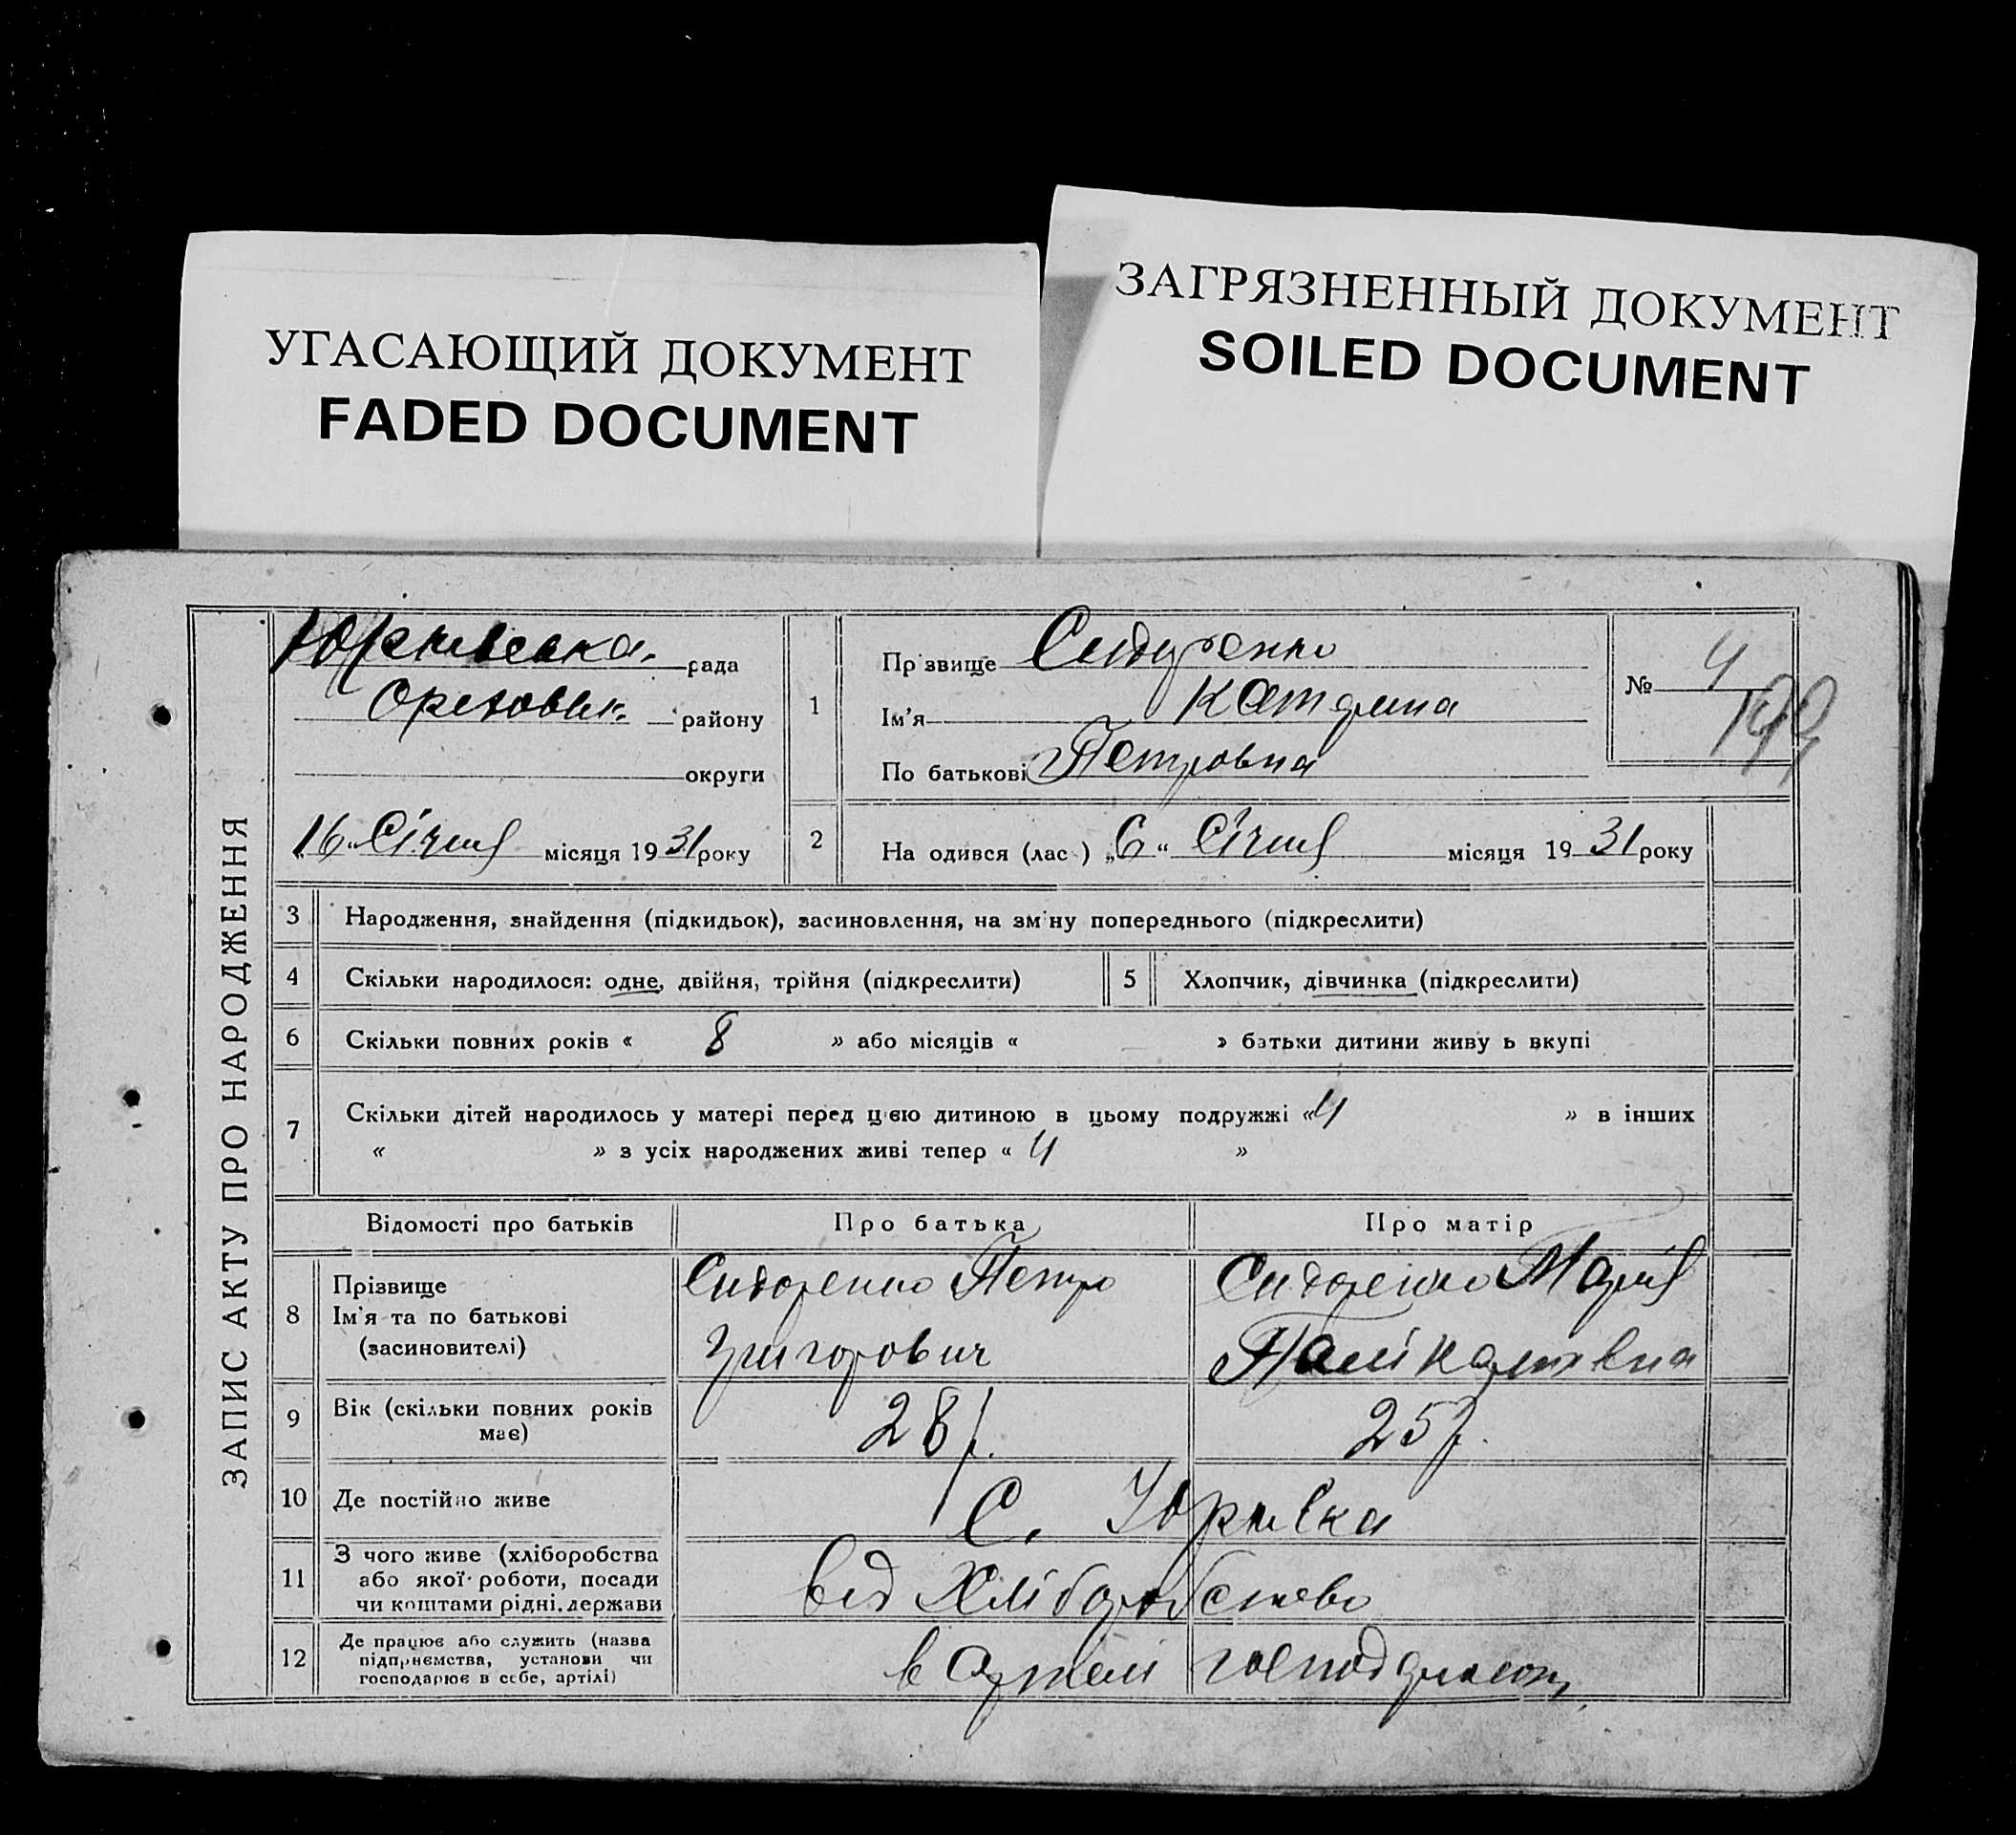 УГАСАЮЩИЙ ДОКУМЕНТ
FADED DOCUMENT
ЗАГРЯЗНЕННЫЙ ДОКУМЕНТ
SOILED DOCUMENT
ЗАПИС АКТУ ПРО НАРОДЖЕННЯ
Юрківська рада
району
округи
„16“ Січня місяця 1931 року
1
Пр звище Сидоренко
Ім'я Катерина
По батькові Петровна
№ 4
2 На одився (лас ) „6“ Січня місяця 1931 року
3 Народження, знайдення (підкидьок), засиновлення, на зм ну попереднього (підкреслити)
4 Скільки народилося: одне, двійня, трійня (підкреслити) 5 Хлопчик, дівчинка (підкреслити)
6 Скільки повних років « 8 » або місяців « » батьки дитини живу ь вкупі
7 Скільки дітей народилось у матері перед цією дитиною в цьому подружжі «4 » в інших
« » з усіх народжених живі тепер « 4 »
Відомості про батьків Про батька Про матір
8 Прізвище
Ім'я та по батькові
(засиновителі)
Сидоренко Петро
Григорович
Сидоренко Марія
9 Вік (скільки повних років
має)
28 р. 25 р.
10 Де постійно живе С. Юрківка
11 З чого живе (хліборобства
або якої роботи, посади
чи коштами рідні, держави
від Хліборобство
12 Де працює або служить (назва
підприємства, установи чи
господарює в себе, артілі)
в Артілі